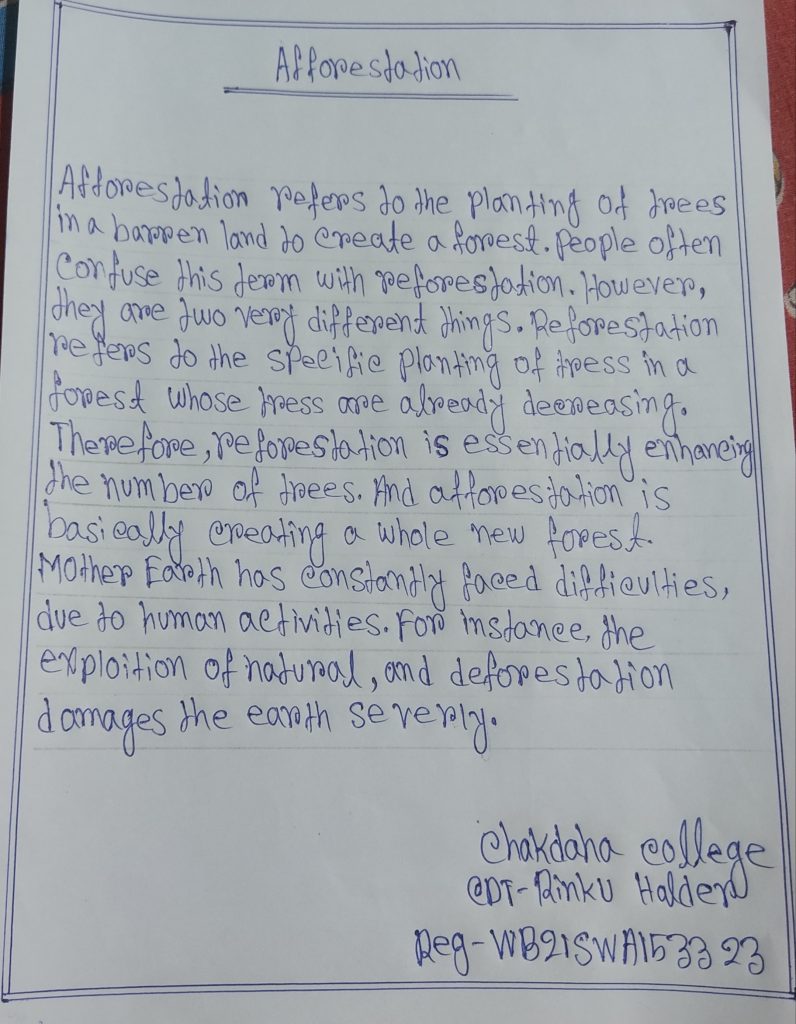 Afforestation
Afforestation refers to the planting of trees
in a barren land to create a forest. People often
Confuse this term with reforestation. However,
they are two very different things. Reforestation
refers to the specific planting of tress in a
forest whose tress are already decreasing.
Therefore, reforestation is essentially enhancing
the number of trees. And afforestation is
basically creating a whole new forest.
Mother Earth has constantly faced difficulties,
due to human activities. For instance, the
exploition of natural, and deforestation
damages the earth severly.
Chakdaha college
CDT-Rinku Halder
Reg-WB21SWA153323